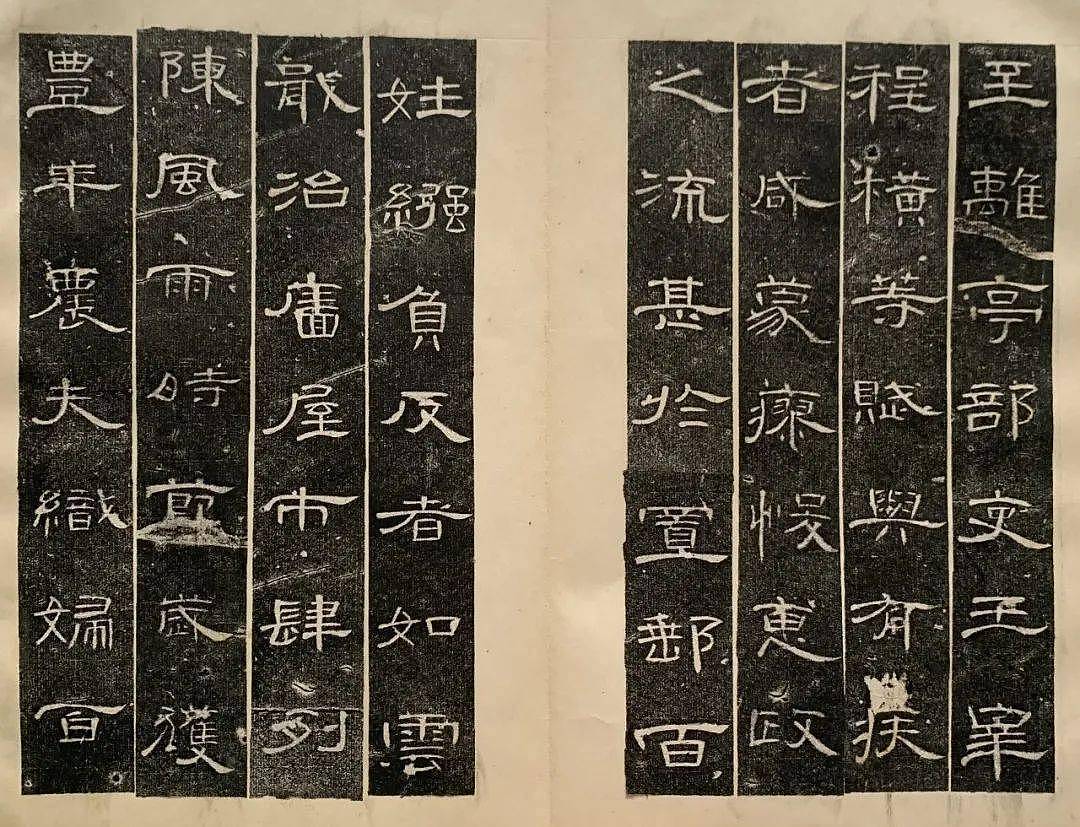 至離亭部吏王宰
程橫等賦與有疾
者咸蒙瘳悛惠政
之流甚於置郵百
姓繦負反者如雲
戢治廧屋市肆列
陳風雨時節歲獲
豊年農夫織婦百